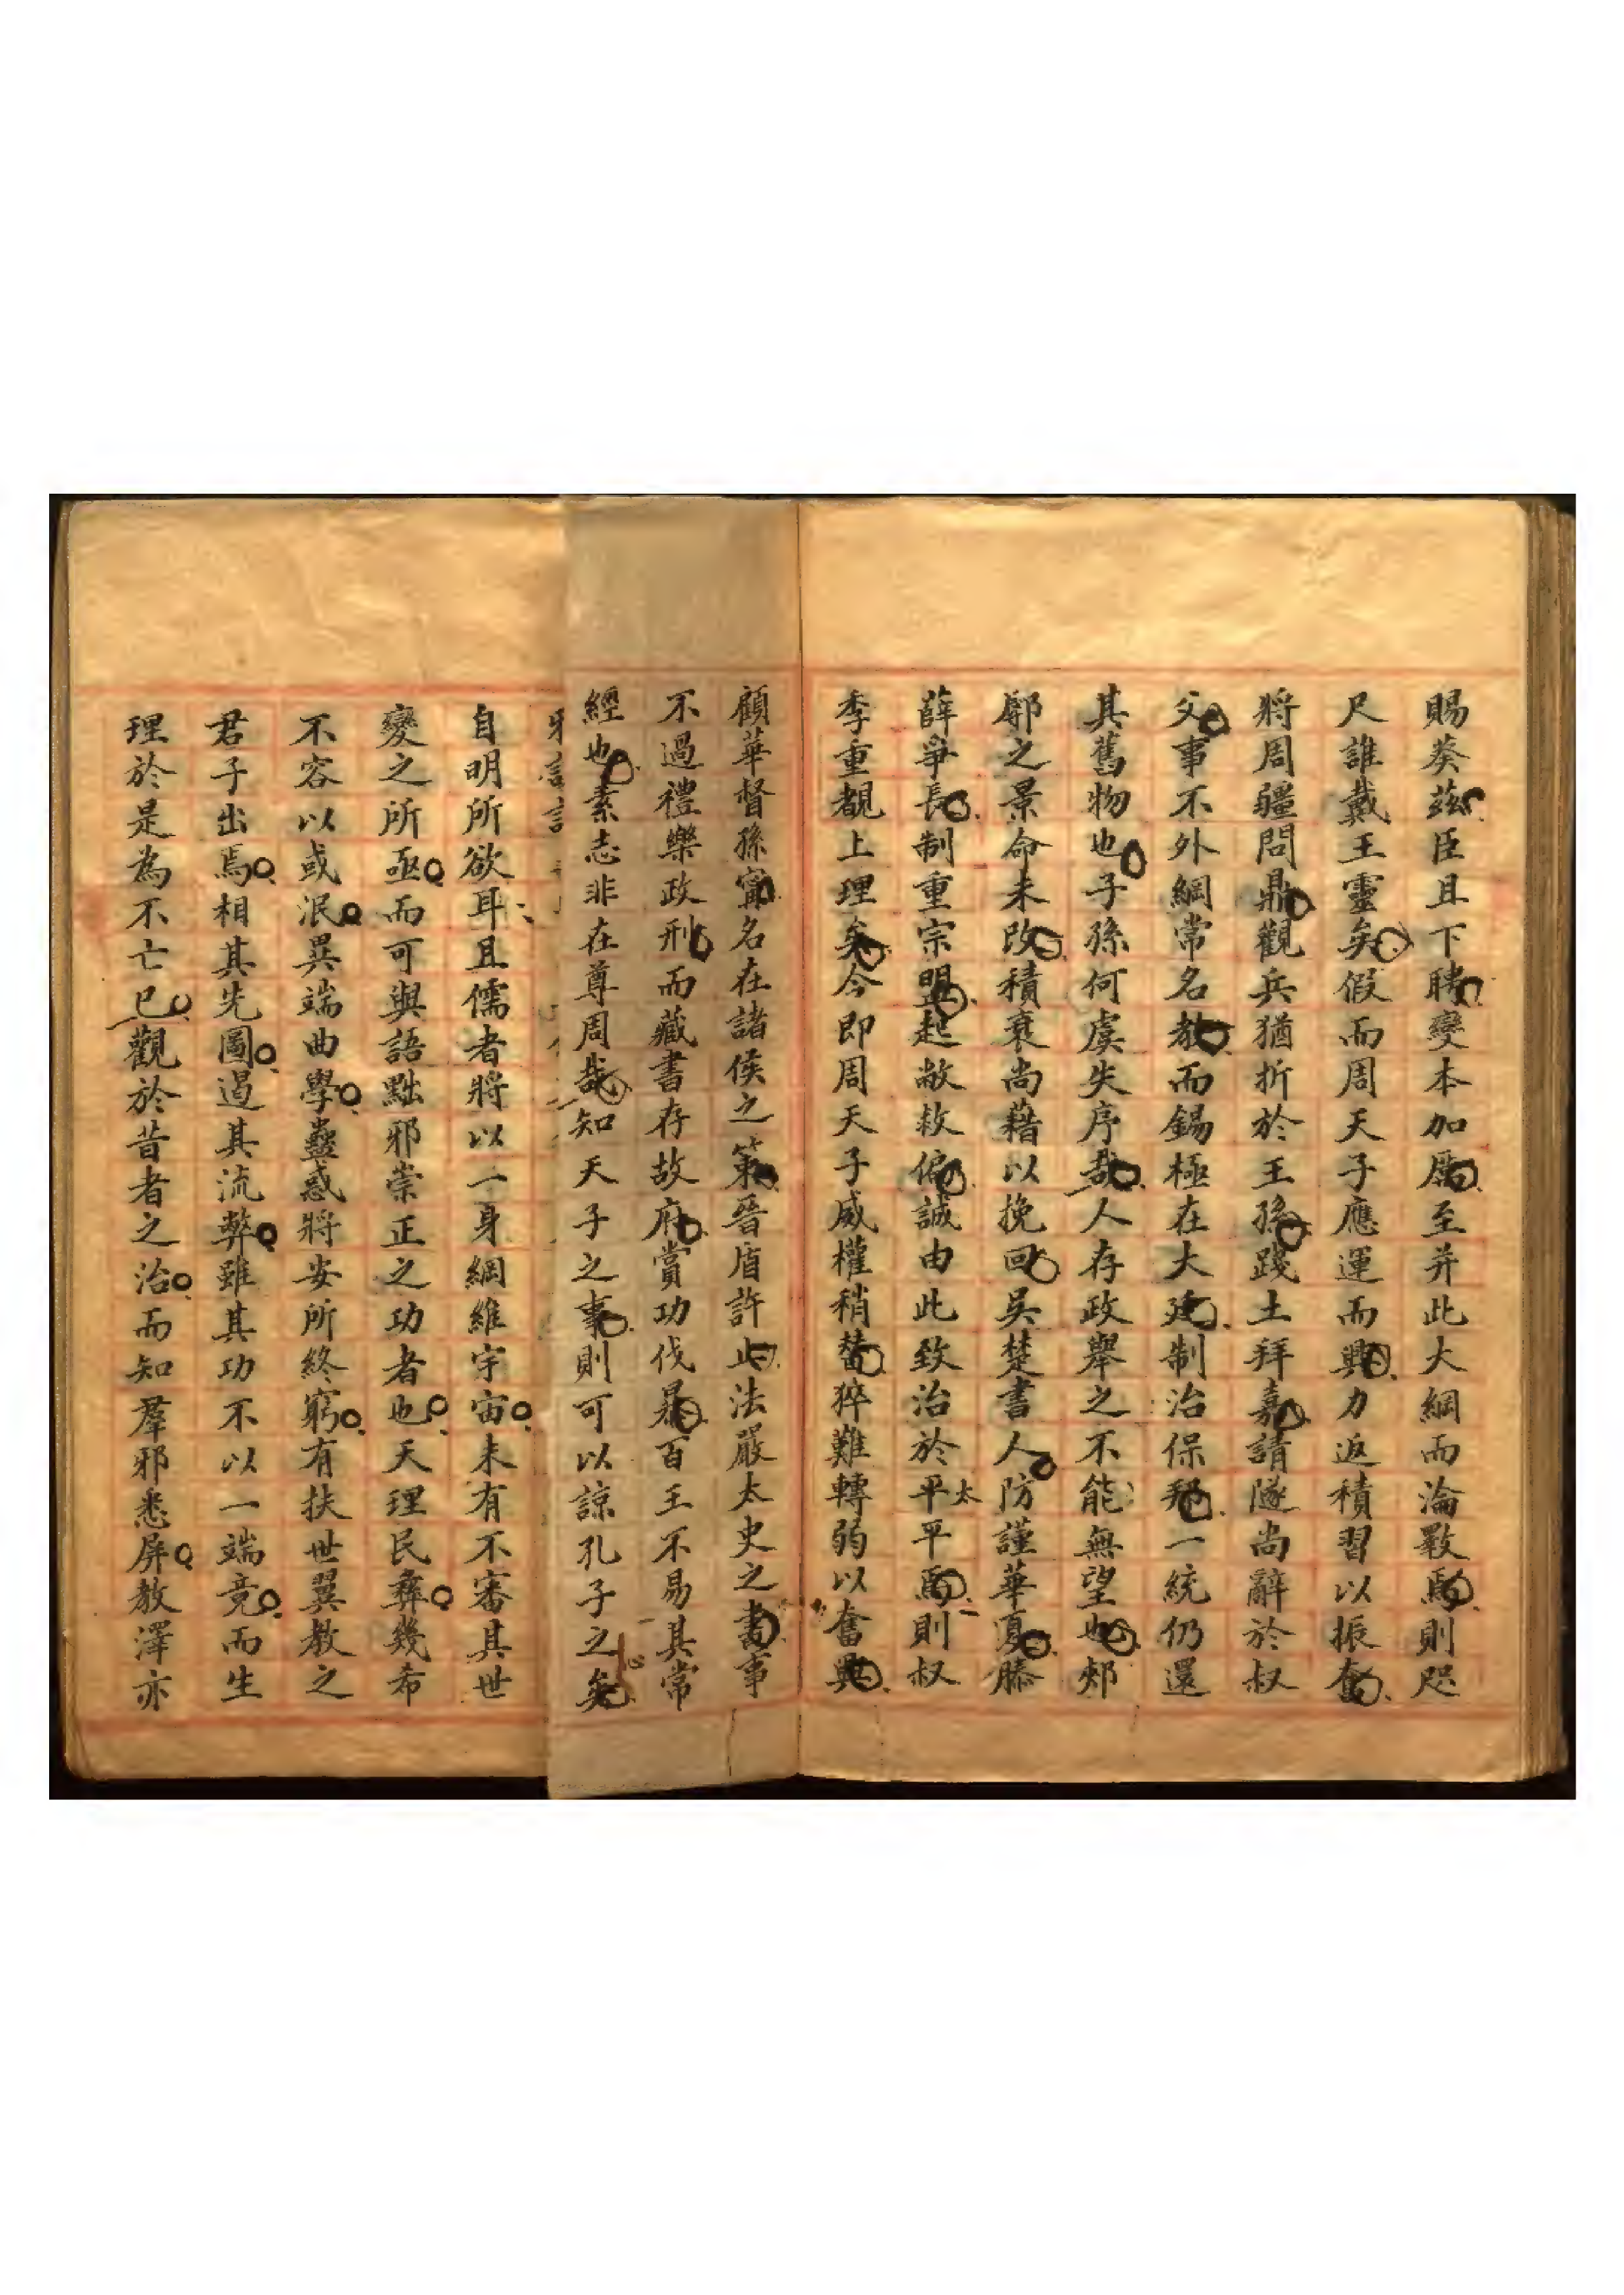 賜葵茲臣且下聘變本加厲至并此大綱而淪斁焉則咫
尺誰戴王靈矣假而周天子應運而興力返積習以振奮
將周疆問鼎觀兵猶折於王孫踐土拜嘉請隧尚辭於叔
父事不外綱常名教而錫極在大廷制治保邦一統仍還
其舊物也子孫何虞失序哉人存政舉之不能無望也郟
鄏之景命未改積衰尚藉以挽回吳楚書人防謹華夏滕
薛爭長制重宗盟起敝救偏誠由此致治於太平平焉則叔
季重覩上理矣今即周天子威權稍替猝難轉弱以奮興
顧華督孫甯名在諸侯之策晉盾許止法嚴太史之書事
不過禮樂政刑而藏書存故府賞功伐暴百王不易其常
經也素志非在尊周哉知天子之事則可以諒孔子之心矣
自明所欲耳且儒者將以一身綱維宇宙未有不審其世
變之所亟而可與語黜邪崇正之功者也天理民彝幾希
不容以或泯異端曲學蠱惑將安所終窮有扶世翼教之
君子出焉相其先圖遏其流弊雖其功不以一端竟而生
理於是為不亡已觀於昔者之治而知羣邪悉屏教澤亦